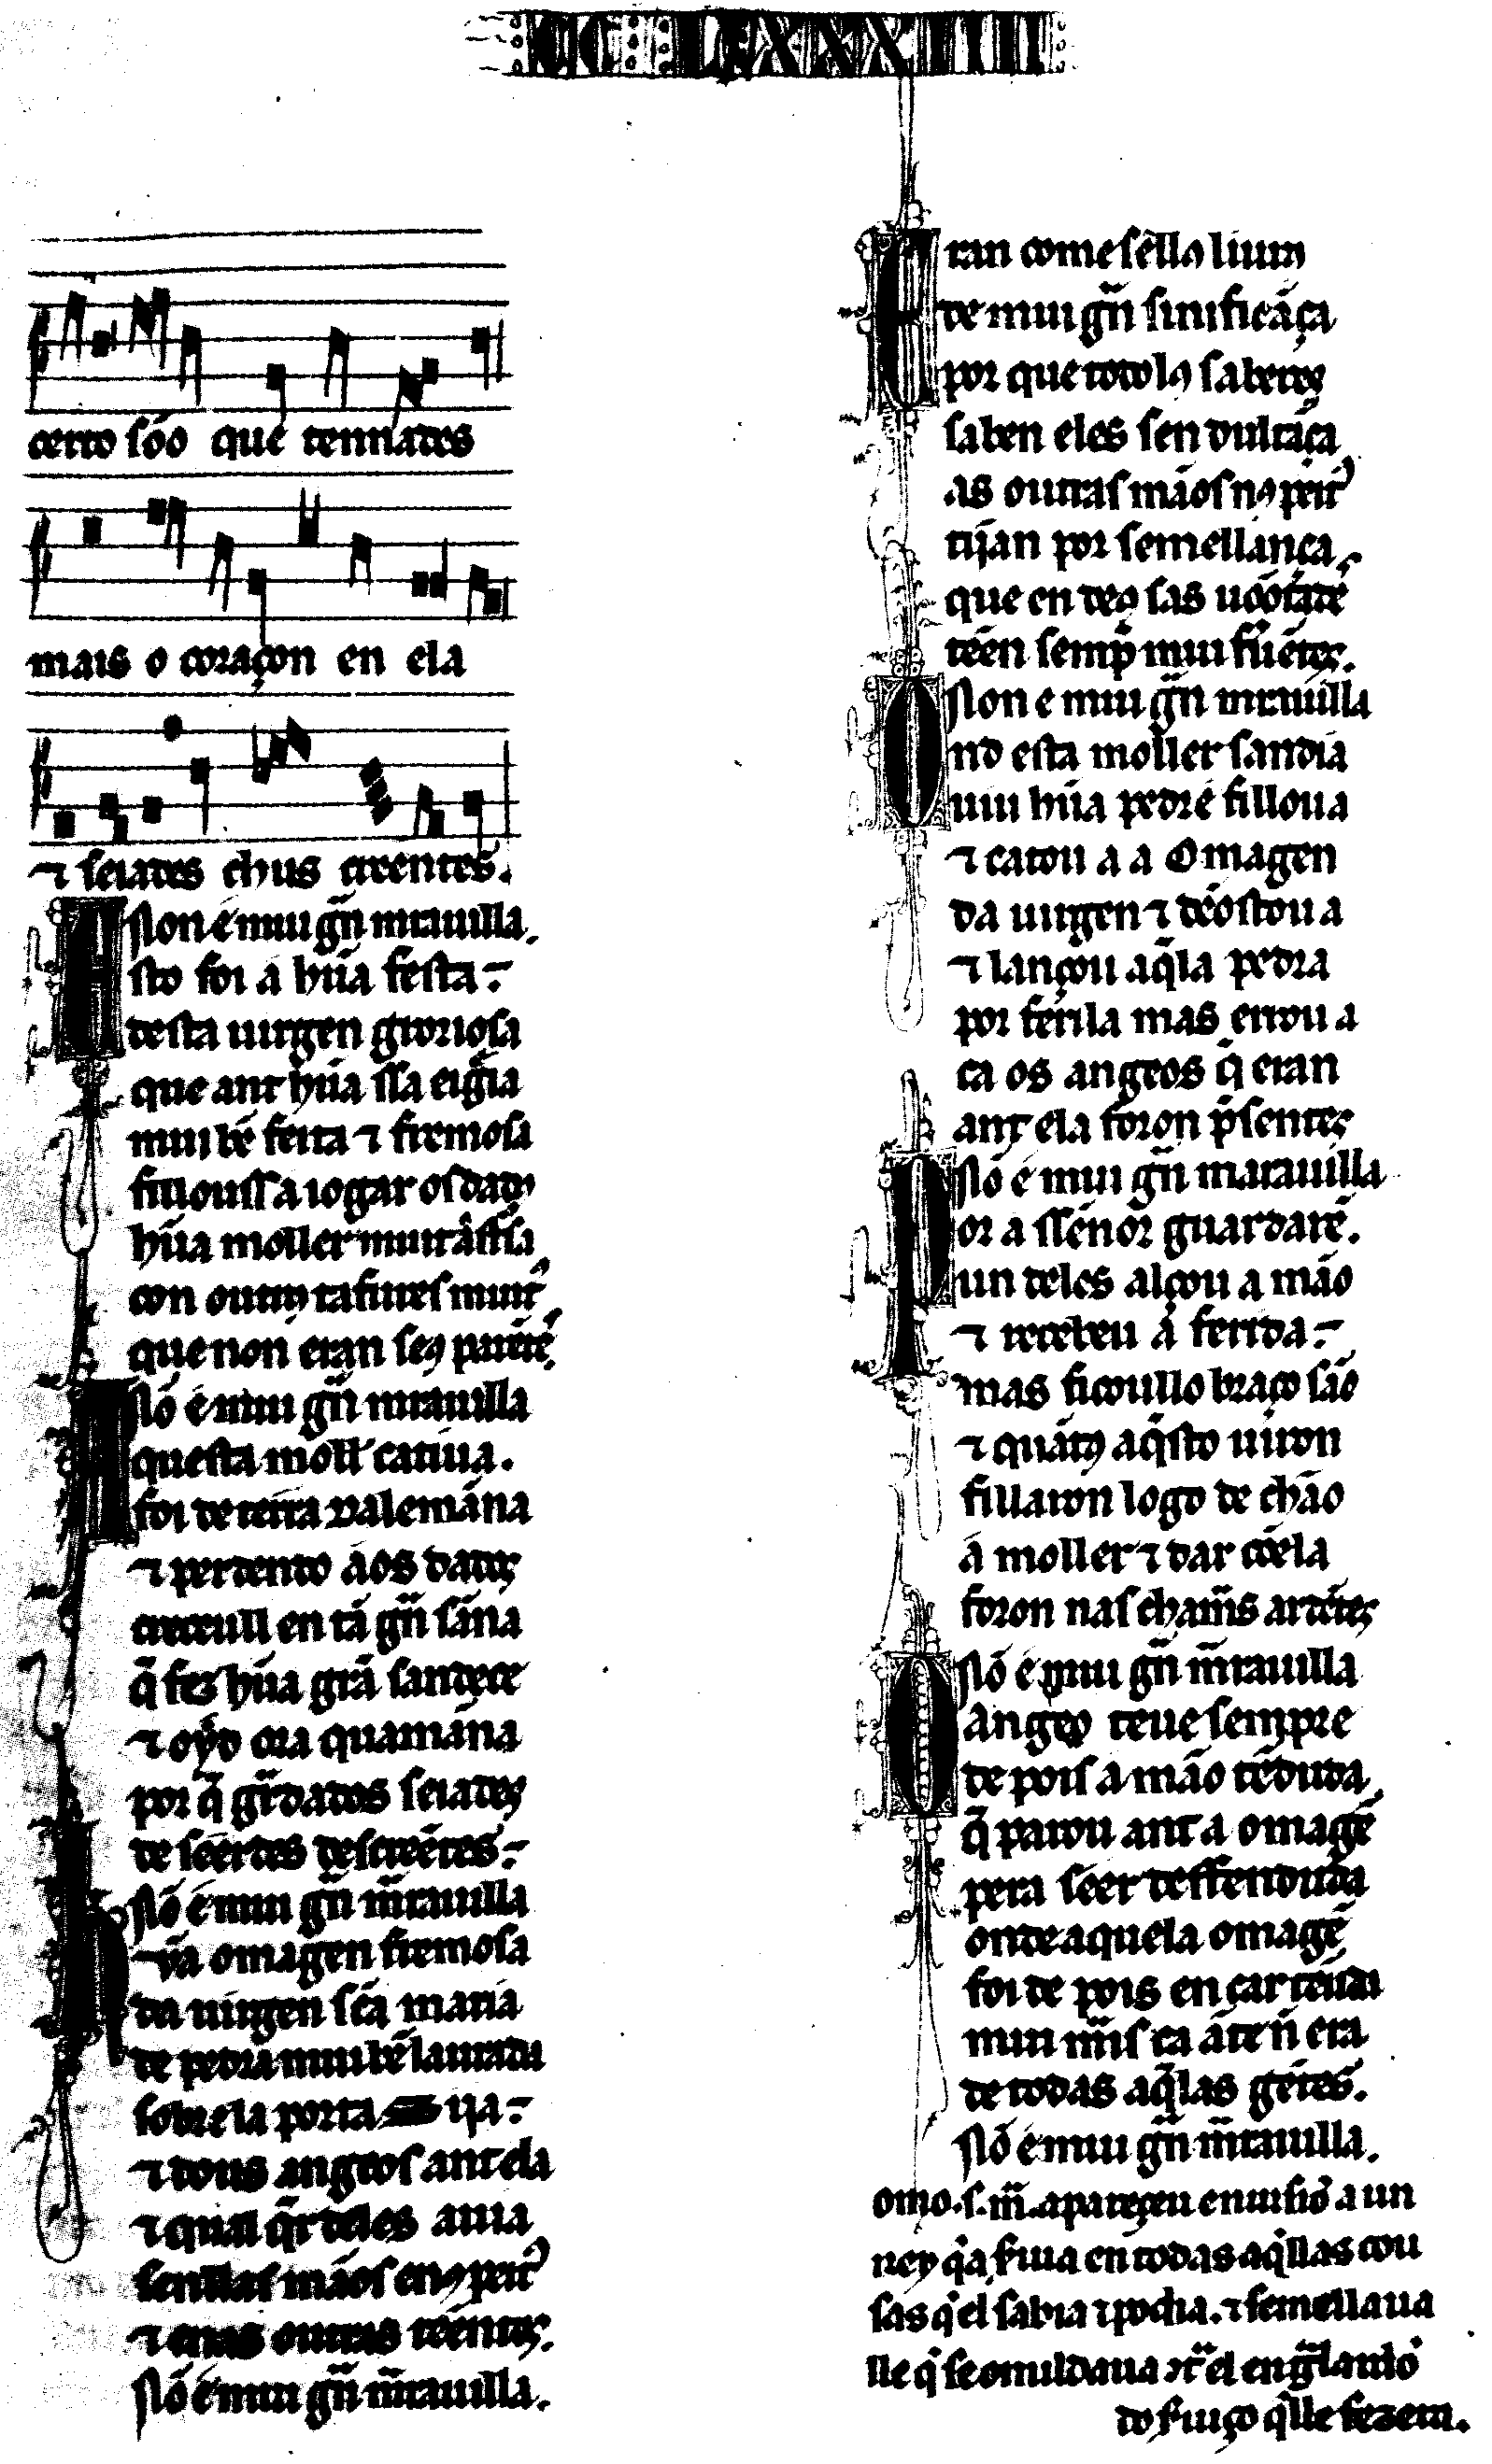 CC LXXXIIII
certo sõo que tennades
mais o coraçon en ela
⁊ seiades chus creentes.
Non é mui grã marauilla.
sto foi a hũa festa
desta uirgen groriosa
que ant hũa ssa eigria
mui bẽ feita ⁊ fremosa
fillousse a iogar os dados
hũa moller muit astrosa
con outros tafures muit
que non eran seus parẽtes
Nõ é mui grã marauilla
questa moller catiua.
foi de terra dalemãna
⁊ perdendo aos dados
creceull en tã grã sãna
q̃ fez hũa grã sandece
⁊ oyd ora quamãna
por q̃ gr̃dados seiades
de seerdes descreẽtes
Nõ é mui grã m̃rauilla
⁊ ỹa omagen fremosa
da uirgen sc̃a maria
de pedra mui bẽ laurada
sobrela porta ija
⁊ dous angeos ant ela
⁊ qual q̃r deles auia
senllas mãos enos peit
⁊ enas outras tẽentes.
Nõ é mui grã m̃rauilla.
ran come senllos liuros
de mui grã sinificãça
por que todolos saberes
saben eles sen dultãça
as outras mãos nos peit
tijan por semellança
que en deos sas uõontades
tẽen semp̃ mui feruẽtes.
Non e mui grã marauilla
nd esta moller sandia
uiu hũa pedr e filloua
⁊ catou a a Omagen
da uirgen ⁊ dẽostoua
⁊ lançou aq̃la pedra
por ferila mas erroua
ca os angeos q̃ eran
ant ela foron p̃sentes
Nõ é mui grã marauilla
or a ssẽnor guardarẽ.
un deles alçou a mão
⁊ recebeu a ferida
mas ficoullo braço são
⁊ quãtos aq̃sto uiron
fillaron logo de chão
a moller ⁊ dar cõ ela
foron nas chamas ardẽtes
Nõ é mui grã m̃rauilla
angeo teue sempre
de pois a mão tẽduda
q̃ parou ant a omagẽ
pera seer deffenduda
onde aquela omagẽ
foi de pois en car teũda
muu mais ca ãte ñ era
de todas aq̃las gẽtes.
Nõ é mui grã m̃rauilla.
omo .s. m̃. apareçeu en uisiõ a un
rey q̃ a s̃uia en todas aq̃llas cou
sas q̃ el sabia ⁊ podia. ⁊ semellaua
lle q̃ se omildaua
do s̃uiço q̃ lle fezera.